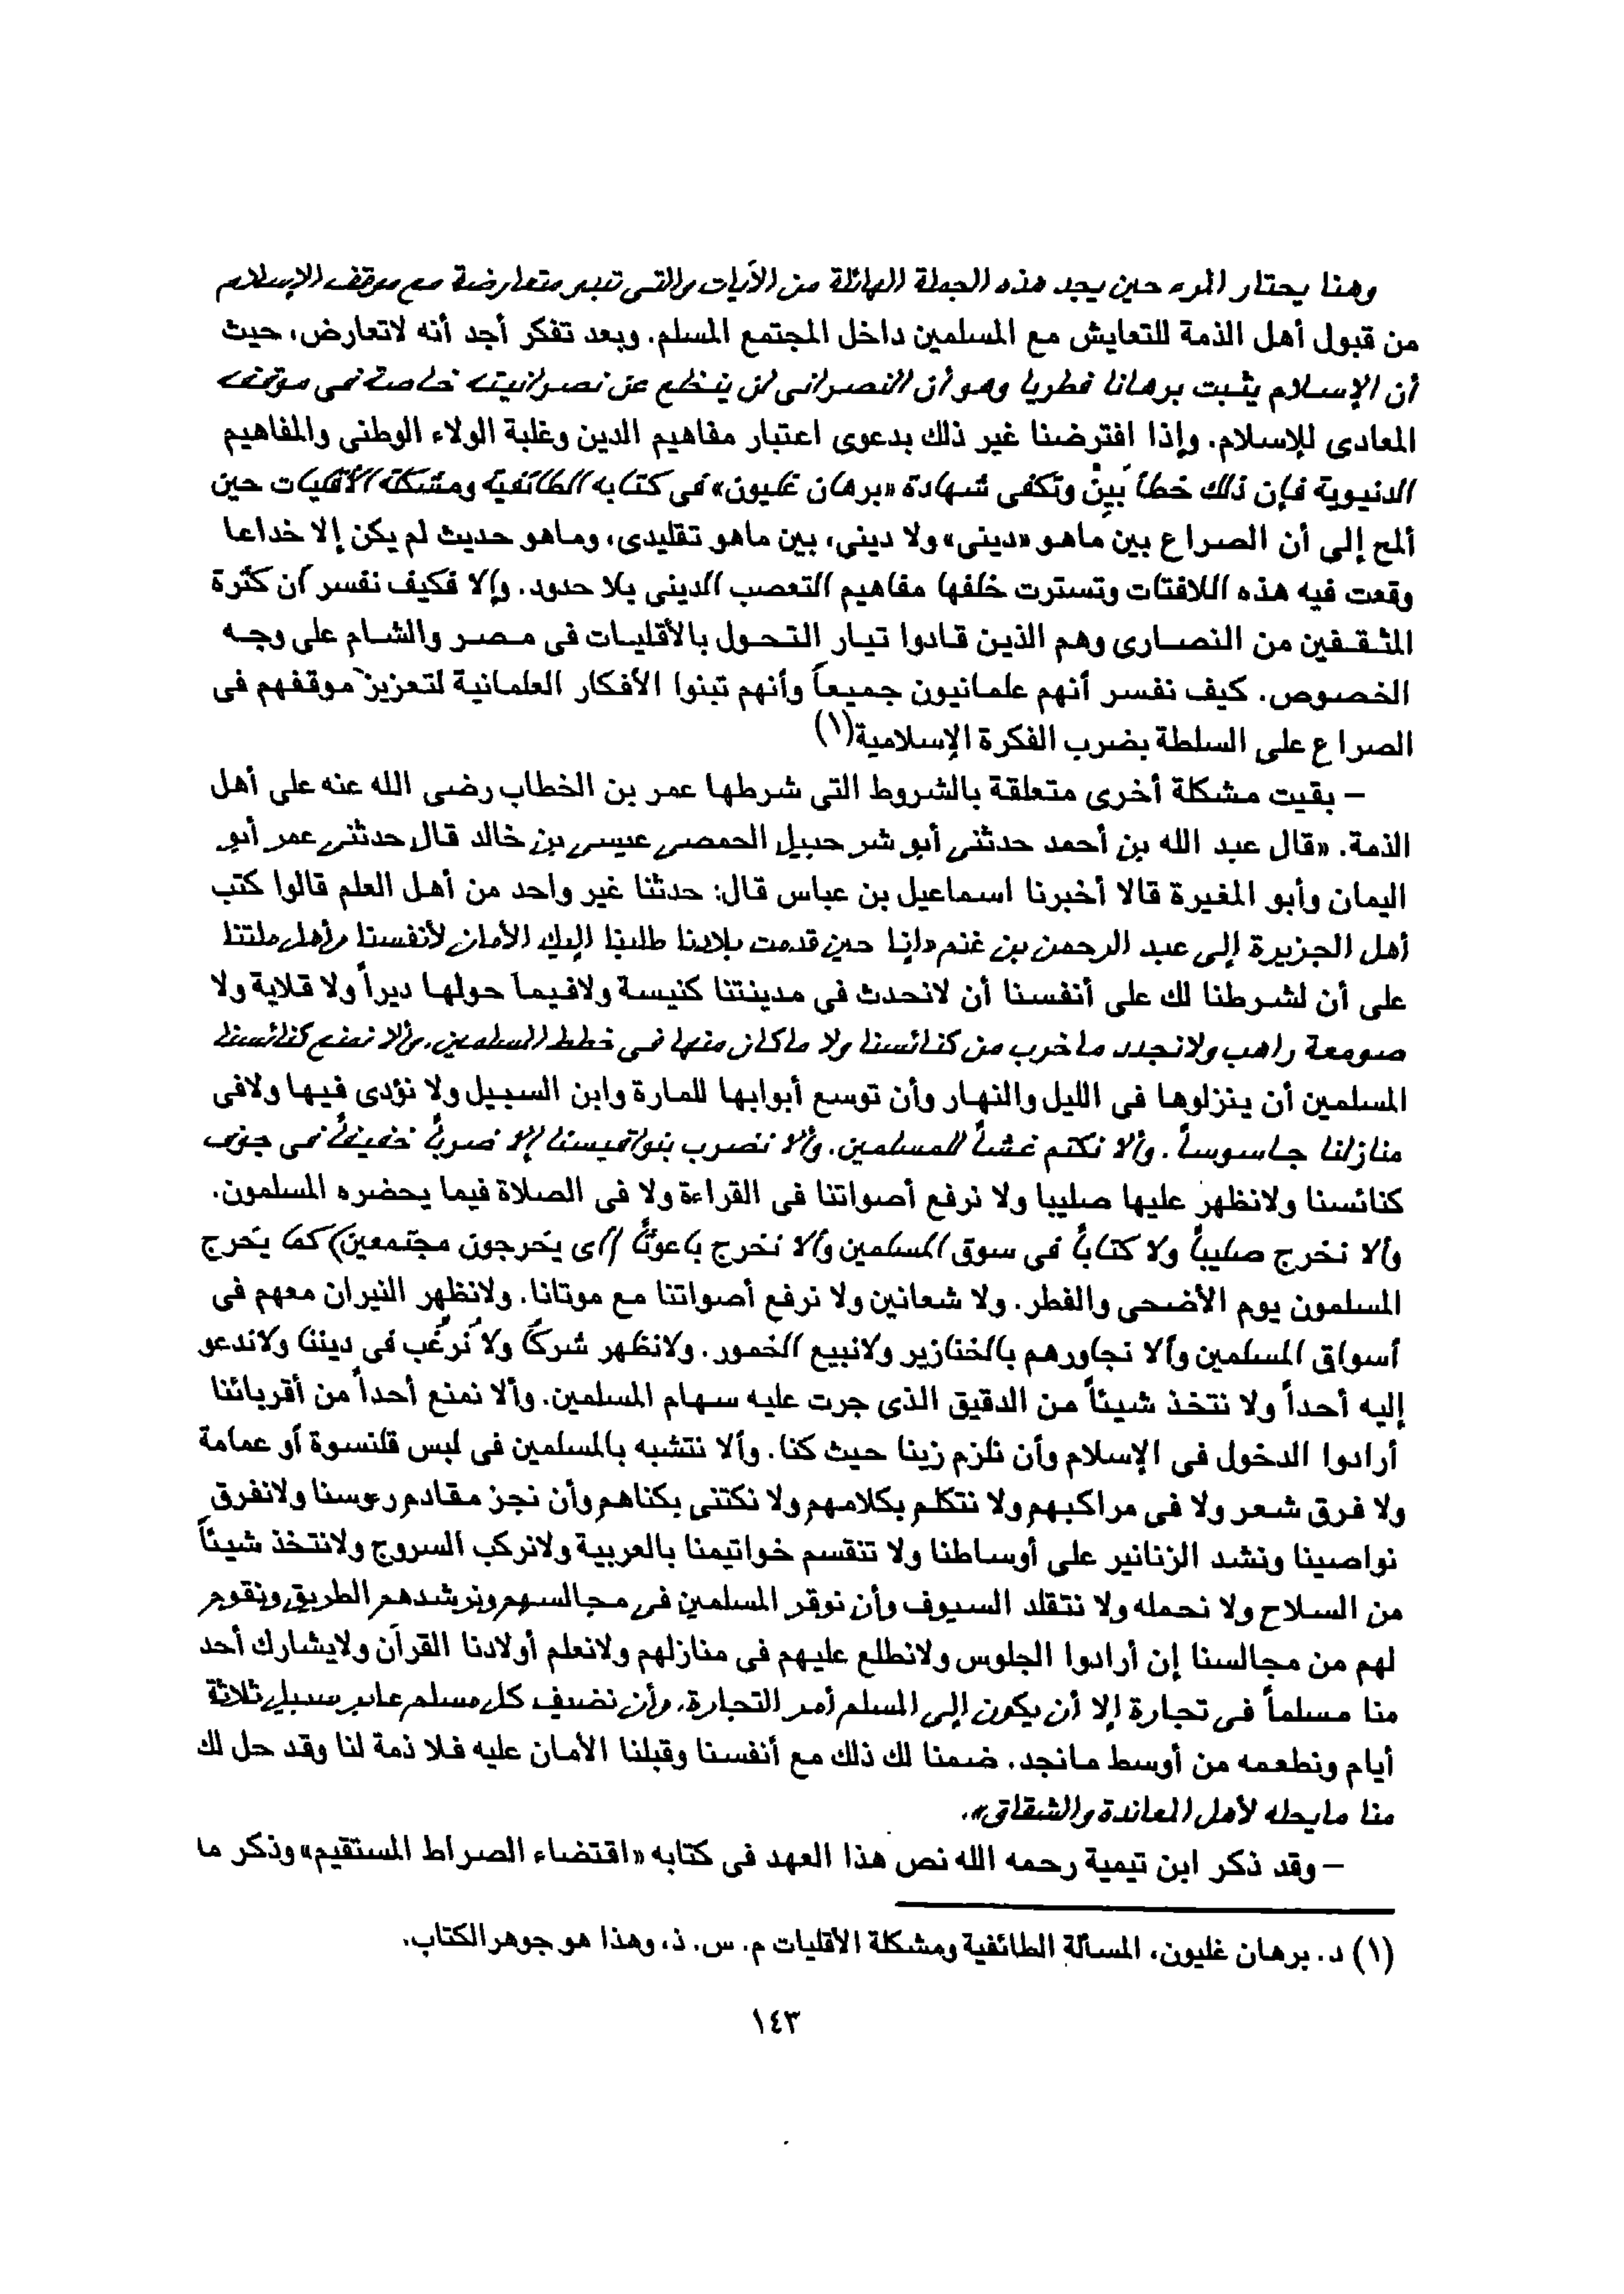 وهنا يحتار المرء حين يجد هذه الجملة الهائلة من الآيات والتى تبدو متعارضة مع موقف الإسلام
من قبول أهل الذمة للتعايش مع المسلمين داخل المجتمع المسلم. وبعد تفكر أجد أنه لاتعارض، حيث
أن الإسلام يثبت برهانا فطريا وهو أن النصرانى لن ينخلع عن نصرانيته خاصة فى موقفه
المعادى للإسلام. وإذا افترضنا غير ذلك بدعوى اعتبار مفاهيم الدين وغلبة الولاء الوطنى والمفاهيم
الدنيوية فإن ذلك خطأ بَينٌ وتكفى شهادة «برهان غليون» فى كتابه الطائفية ومشكلة الأقليات حين
ألمح إلى أن الصراع بين ماهو «دينى» ولا دينى، بين ماهو تقليدى، وماهو حديث لم يكن إلا خداعا
وقعت فيه هذه اللافتات وتسترت خلفها مفاهيم التعصب الدينى بلا حدود. وإلا فكيف نفسر أن كثرة
المثقفين من النصارى وهم الذين قادوا تيار التحول بالأقليات فى مصر والشام على وجه
الخصوص. كيف نفسر أنهم علمانيون جميعاً وأنهم تبنوا الأفكار العلمانية لتعزيز موقفهم فى
الصراع على السلطة بضرب الفكرة الإسلامية(١)
– بقيت مشكلة أخرى متعلقة بالشروط التى شرطها عمر بن الخطاب رضى الله عنه على أهل
الذمة. «قال عبد الله بن أحمد حدثنى أبو شرحبيل الحمصى عيسى بن خالد قال حدثنى عمر أبو
اليمان وأبو المغيرة قالا أخبرنا اسماعيل بن عباس قال: حدثنا غير واحد من أهل العلم قالوا كتب
أهل الجزيرة إلى عبد الرحمن بن غنم «إنا حين قدمت بلادنا طلبنا إليك الأمان لأنفسنا وأهل ملتنا
على أن لشرطنا لك على أنفسنا أن لانحدث فى مدينتنا كنيسة ولافيما حولها ديراً ولا قلاية ولا
صومعة راهب ولانجدد ماخرب من كنائسنا ولا ماكان منها فى خطط المسلمين. وألا نمنع كنائسنا
المسلمين أن ينزلوها فى الليل والنهار وأن توسع أبوابها للمارة وابن السبيل ولا نؤدى فيها ولافى
منازلنا جاسوساً. وألا نكتم غشاً للمسلمين. وألا نضرب بنواقيسنا إلا ضرباً خفيفاً فى جوف
كنائسنا ولانظهر عليها صليبا ولا نرفع أصواتنا فى القراءة ولا فى الصلاة فيما يحضره المسلمون.
وألا نخرج صليباً ولا كتاباً فى سوق المسلمين وألا نخرج باعوثاً (أى يخرجون مجتمعين) كما يخرج
المسلمون يوم الأضحى والفطر. ولا شعانين ولا نرفع أصواتنا مع موتانا. ولانظهر النيران معهم فى
أسواق المسلمين وألا نجاورهم بالخنازير ولانبيع الخمور. ولانظهر شركاً ولا نُرغّب فى ديننا ولاندعو
إليه أحداً ولا نتخذ شيئاً من الدقيق الذى جرت عليه سهام المسلمين. وألا نمنع أحداً من أقربائنا
أرادوا الدخول فى الإسلام وأن نلزم زينا حيث كنا. وألا نتشبه بالمسلمين فى لبس قلنسوة أو عمامة
ولا فرق شعر ولا فى مراكبهم ولا نتكلم بكلامهم ولا نكتنى بكناهم وأن نجز مقادم رءوسنا ولانفرق
نواصينا ونشد الزنانير على أوساطنا ولا تنقسم خواتيمنا بالعربية ولانركب السروج ولانتخذ شيئاً
من السلاح ولا نحمله ولا نتقلد السيوف وأن نوقر المسلمين فى مجالسهم ونرشدهم الطريق ونقوم
لهم من مجالسنا إن أرادوا الجلوس ولانطلع عليهم فى منازلهم ولانعلم أولادنا القرآن ولايشارك أحد
منا مسلماً فى تجارة إلا أن يكون إلى المسلم أمر التجارة. وأن نضيف كل مسلم عابر سبيل ثلاثة
أيام ونطعمه من أوسط مانجد. ضمنا لك ذلك مع أنفسنا وقبلنا الأمان عليه فلا ذمة لنا وقد حل لك
منا مايحله لأهل المعاندة والشقاق».
– وقد ذكر ابن تيمية رحمه الله نص هذا العهد فى كتابه «اقتضاء الصراط المستقيم» وذكر ما
(١) د. برهان غليون، المسألة الطائفية ومشكلة الأقليات م. س. ذ، وهذا هو جوهر الكتاب.
١٤٣